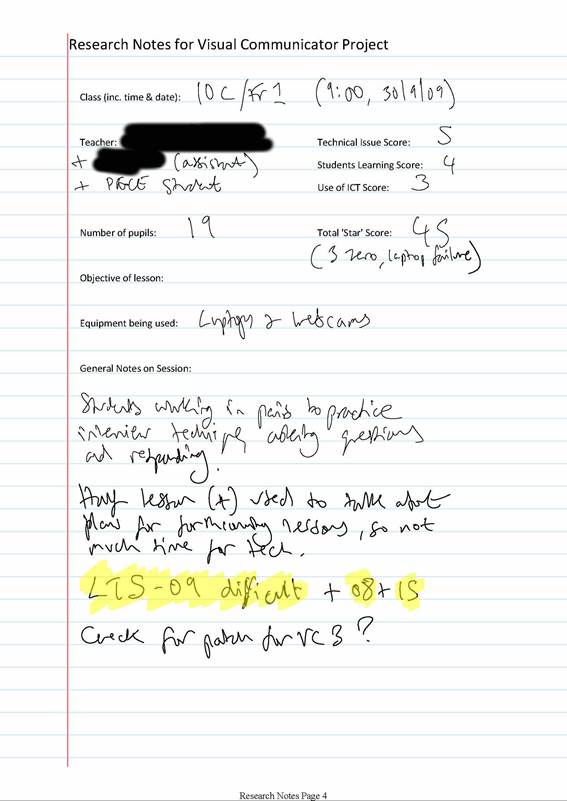 Research Notes for Visual Communicator Project
Class (inc. time & date): 10C/Fr1 (9:00, 30/9/09)
Teacher:
Technical Issue Score: 5
+ (assistant)
Students Learning Score: 4
+ PGCE student
Use of ICT Score: 3
Number of pupils: 19
Total 'Star' Score: 45
(3 zero, laptop failure)
Objective of lesson:
Equipment being used: Laptops & webcams
General Notes on Session:
Students working in pairs to practice
interview asking questions
and responding.
Half lesson (+) used to talk about
plans for forthcoming lessons, so not
much time for tech.
LTS-09 difficult + 08 + 15
Check for patch for VC3?
Research Notes Page 4